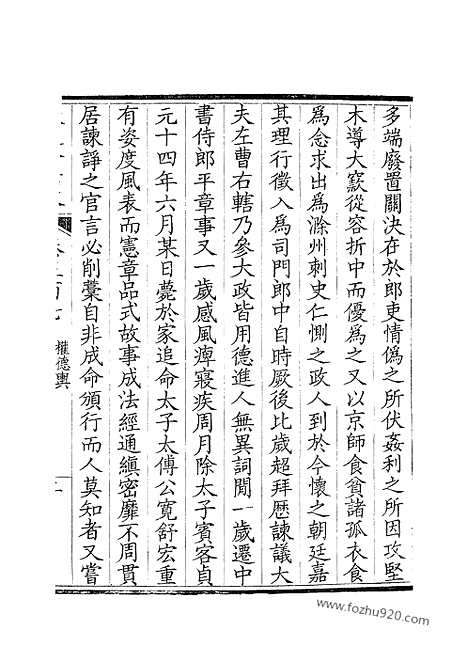 多端廢置關決在於郎吏情僞之所伏姦利之所因攻堅
木導大窾從容折中而優爲之又以京師食貧諸孤衣食
爲念求出爲滁州刺史仁惻之政人到於今懷之朝廷嘉
其理行徵入爲司門郎中自時厥後比歲超拜歷諫議大
夫左曹右轄乃參大政皆用德進人無異詞閒一歲遷中
書侍郎平章事又一歲感風痺寢疾周月除太子賓客貞
元十四年六月某日薨於家追命太子太傅公寬舒宏重
有姿度風表而憲章品式故事成法經通縝密靡不周貫
居諫諍之官言必削藁自非成命頒行而人莫知者又嘗
權德輿
www.fozhu920.com